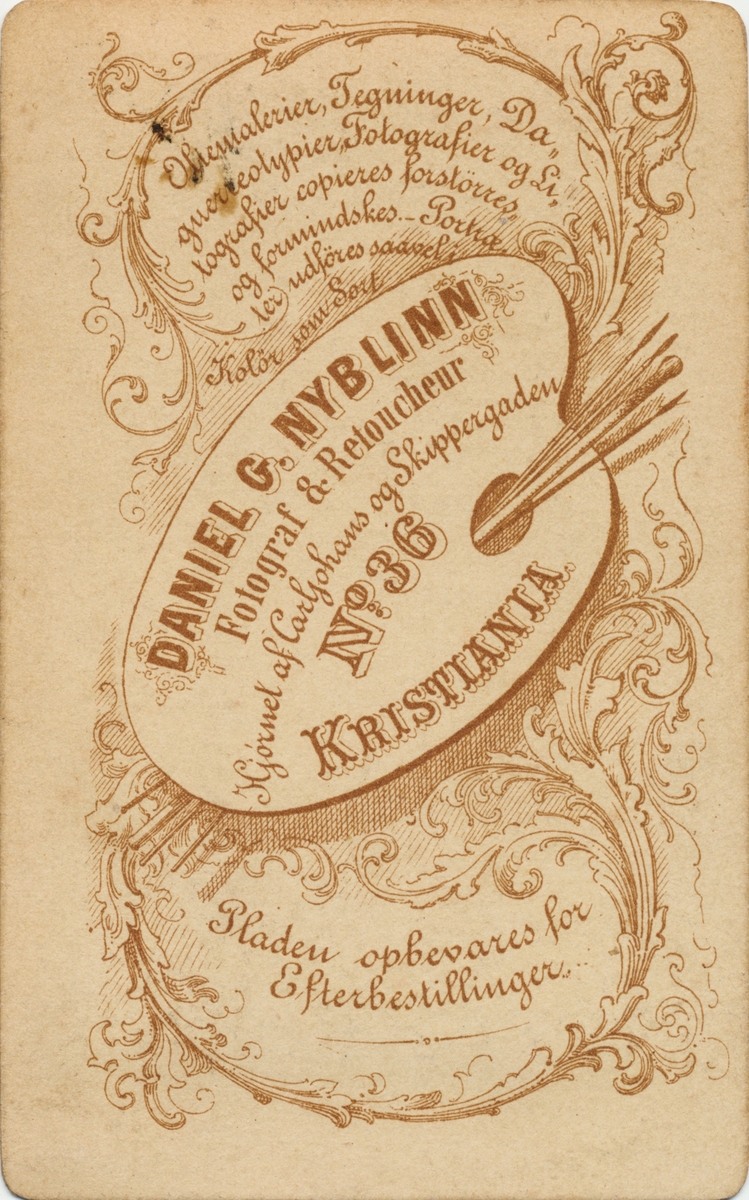 Oliemalerier, Tegninger, Da„
guerreotypier, Fotografier og Li„
tografier copieres forstörres
og formindskes.— Portræ
ter udföres saavel i
Kolör som Sort
DANIEL G. NYBLINN
Fotograf & Retoucheur
Hjørnet af Carl Johans og Skippergaden
No. 36
KRISTIANIA.
Pladen opbevares for
Efterbestillinger.